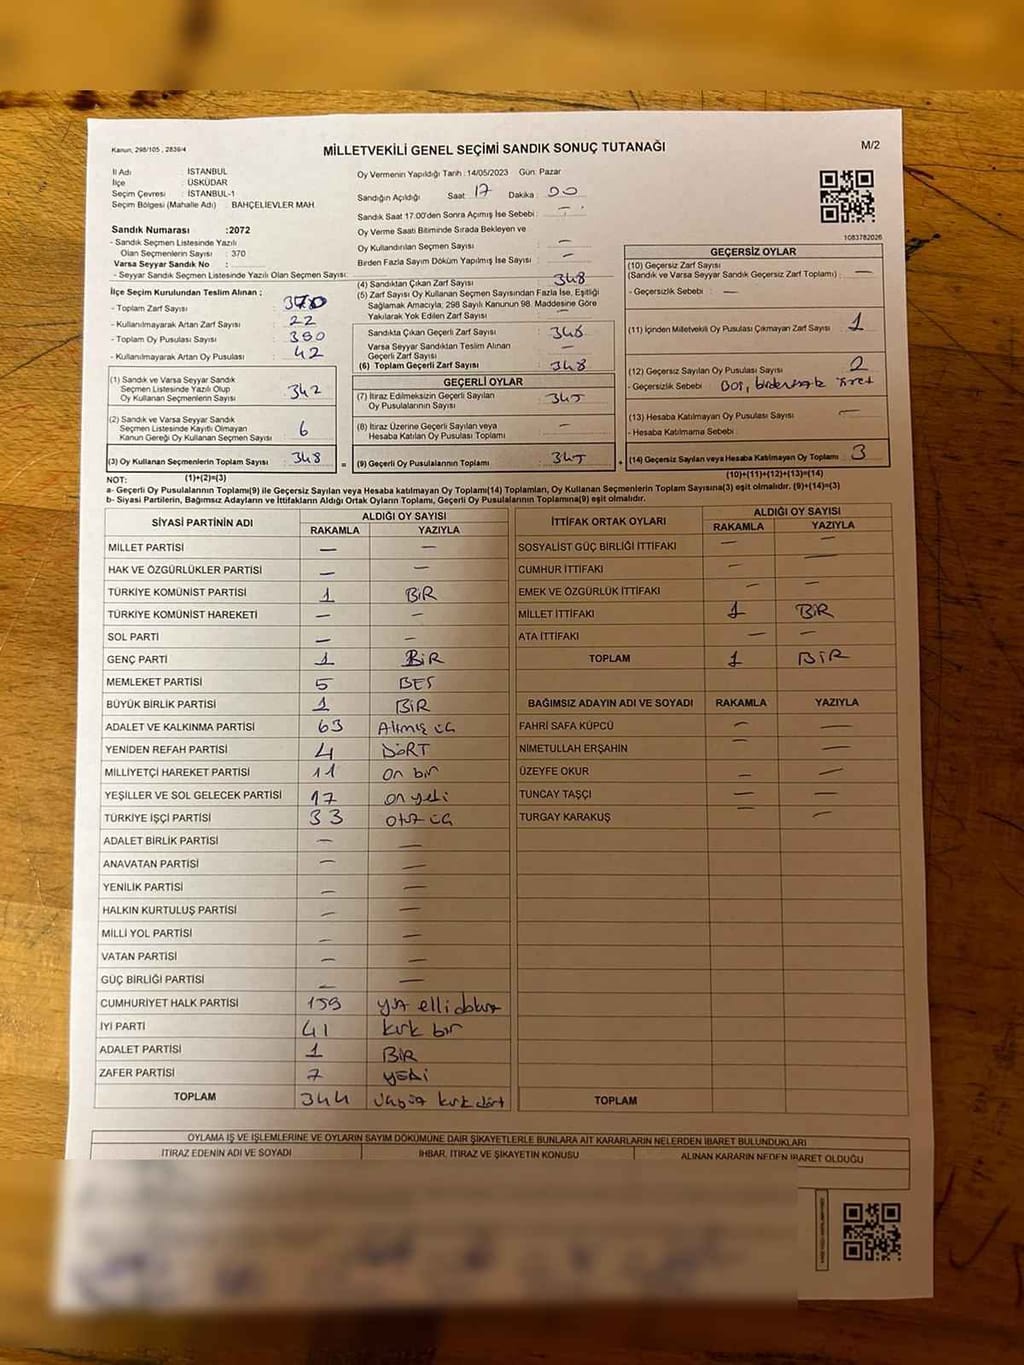 Kanun, 298/105 , 2839/4
MİLLETVEKİLİ GENEL SEÇİMİ SANDIK SONUÇ TUTANAĞI
M/2
İl Adı : İSTANBUL
İlçe : ÜSKÜDAR
Seçim Çevresi : İSTANBUL-1
Seçim Bölgesi (Mahalle Adı) : BAHÇELİEVLER MAH.
Sandık Numarası :2072
- Sandık Seçmen Listesinde Yazılı
Olan Seçmenlerin Sayısı : 370
Varsa Seyyar Sandık No :
- Seyyar Sandık Seçmen Listesinde Yazılı Olan Seçmen Sayısı:
Oy Vermenin Yapıldığı Tarih :14/05/2023 Gün: Pazar
Sandığın Açıldığı Saat: 17 Dakika : 00
Sandık Saat 17:00'den Sonra Açımış İse Sebebi : —
Oy Verme Saati Bitiminde Sırada Bekleyen ve
Oy Kullandırılan Seçmen Sayısı : —
Birden Fazla Sayım Döküm Yapılmış İse Sayısı : —
1083782026
İlçe Seçim Kurulundan Teslim Alınan ;
- Toplam Zarf Sayısı : 370
- Kullanılmayarak Artan Zarf Sayısı : 22
- Toplam Oy Pusulası Sayısı : 390
- Kullanılmayarak Artan Oy Pusulası : 42
(1) Sandık ve Varsa Seyyar Sandık
Seçmen Listesinde Yazılı Olup
Oy Kullanan Seçmenlerin Sayısı : 342
(2) Sandık ve Varsa Seyyar Sandık
Seçmen Listesinde Kayıtlı Olmayan
Kanun Gereği Oy Kullanan Seçmen Sayısı : 6
(3) Oy Kullanan Seçmenlerin Toplam Sayısı : 348
(4) Sandıktan Çıkan Zarf Sayısı : 348
(5) Zarf Sayısı Oy Kullanan Seçmen Sayısından Fazla İse, Eşitliği
Sağlamak Amacıyla; 298 Sayılı Kanunun 98. Maddesine Göre
Yakılarak Yok Edilen Zarf Sayısı : —
Sandıkta Çıkan Geçerli Zarf Sayısı : 348
Varsa Seyyar Sandıktan Teslim Alınan
Geçerli Zarf Sayısı : —
(6) Toplam Geçerli Zarf Sayısı : 348
GEÇERLİ OYLAR
(7) İtiraz Edilmeksizin Geçerli Sayılan
Oy Pusulalarının Sayısı : 345
(8) İtiraz Üzerine Geçerli Sayılan veya
Hesaba Katılan Oy Pusulası Toplamı : —
= (9) Geçerli Oy Pusulalarının Toplamı : 345
GEÇERSİZ OYLAR
(10) Geçersiz Zarf Sayısı
(Sandık ve Varsa Seyyar Sandık Geçersiz Zarf Toplamı) : —
- Geçersizlik Sebebi : —
(11) İçinden Milletvekili Oy Pusulası Çıkmayan Zarf Sayısı : 1
(12) Geçersiz Sayılan Oy Pusulası Sayısı : 2
- Geçersizlik Sebebi : Boş,
(13) Hesaba Katılmayan Oy Pusulası Sayısı : —
- Hesaba Katılmama Sebebi :
+ (14) Geçersiz Sayılan veya Hesaba Katılmayan Oy Toplamı : 3
NOT: (1)+(2)=(3)
(10)+(11)+(12)+(13)=(14)
a- Geçerli Oy Pusulalarının Toplamı(9) ile Geçersiz Sayılan veya Hesaba katılmayan Oy Toplamı(14) Toplamları, Oy Kullanan Seçmenlerin Toplam Sayısına(3) eşit olmalıdır. (9)+(14)=(3)
b- Siyasi Partilerin, Bağımsız Adayların ve İttifakların Aldığı Ortak Oyların Toplamı, Geçerli Oy Pusulalarının Toplamına(9) eşit olmalıdır.
SİYASİ PARTİNİN ADI ALDIĞI OY SAYISI
RAKAMLA YAZIYLA
MİLLET PARTİSİ — —
HAK VE ÖZGÜRLÜKLER PARTİSİ — —
TÜRKİYE KOMÜNİST PARTİSİ 1 BİR
TÜRKİYE KOMÜNİST HAREKETİ — —
SOL PARTİ — —
GENÇ PARTİ 1 BİR
MEMLEKET PARTİSİ 5 BEŞ
BÜYÜK BİRLİK PARTİSİ 1 BİR
ADALET VE KALKINMA PARTİSİ 63 Altmış üç
YENİDEN REFAH PARTİSİ 4 DÖRT
MİLLİYETÇİ HAREKET PARTİSİ 11 on bir
YEŞİLLER VE SOL GELECEK PARTİSİ 17 on yedi
TÜRKİYE İŞÇİ PARTİSİ 33 otuz üç
ADALET BİRLİK PARTİSİ — —
ANAVATAN PARTİSİ — —
YENİLİK PARTİSİ — —
HALKIN KURTULUŞ PARTİSİ — —
MİLLİ YOL PARTİSİ — —
VATAN PARTİSİ — —
GÜÇ BİRLİĞİ PARTİSİ — —
CUMHURİYET HALK PARTİSİ 159 yüz elli dokuz
İYİ PARTİ 41 kırk bir
ADALET PARTİSİ 1 BİR
ZAFER PARTİSİ 7 YEDİ
TOPLAM 344 üçyüz kırk dört
İTTİFAK ORTAK OYLARI ALDIĞI OY SAYISI
RAKAMLA YAZIYLA
SOSYALİST GÜÇ BİRLİĞİ İTTİFAKI — —
CUMHUR İTTİFAKI — —
EMEK VE ÖZGÜRLÜK İTTİFAKI — —
MİLLET İTTİFAKI 1 BİR
ATA İTTİFAKI — —
TOPLAM 1 BİR
BAĞIMSIZ ADAYIN ADI VE SOYADI RAKAMLA YAZIYLA
FAHRİ SAFA KÜPCÜ — —
NİMETULLAH ERŞAHİN — —
ÜZEYFE OKUR — —
TUNCAY TAŞÇI — —
TURGAY KARAKUŞ — —
TOPLAM
OYLAMA İŞ VE İŞLEMLERİNE VE OYLARIN SAYIM DÖKÜMÜNE DAİR ŞİKAYETLERLE BUNLARA AİT KARARLARIN NELERDEN İBARET BULUNDUKLARI
İTİRAZ EDENİN ADI VE SOYADI İHBAR, İTİRAZ VE ŞİKAYETİN KONUSU ALINAN KARARIN NEDEN İBARET OLDUĞU